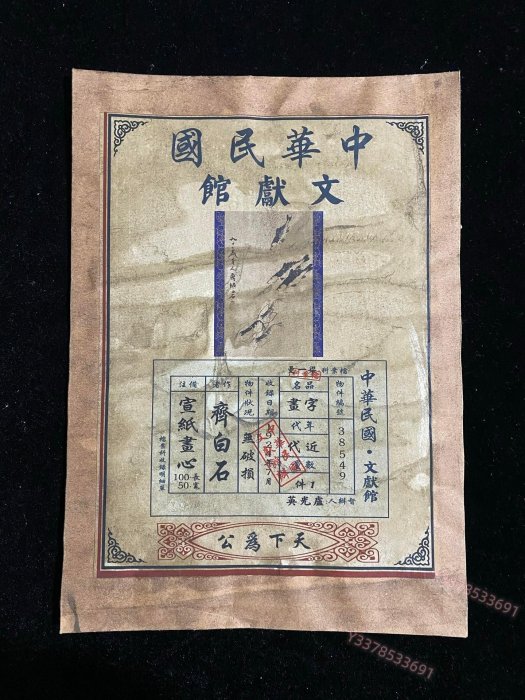 中華民國
文獻館
中華民國・文獻館
物件編號
38549
品名
字畫
年代
近代
數
件1
督辦人:盧光英
收錄日期
年 月
物件狀況
無破損
作者
齊白石
備注
宣紙畫心
長寬
100
50
天下為公
Y3378533691